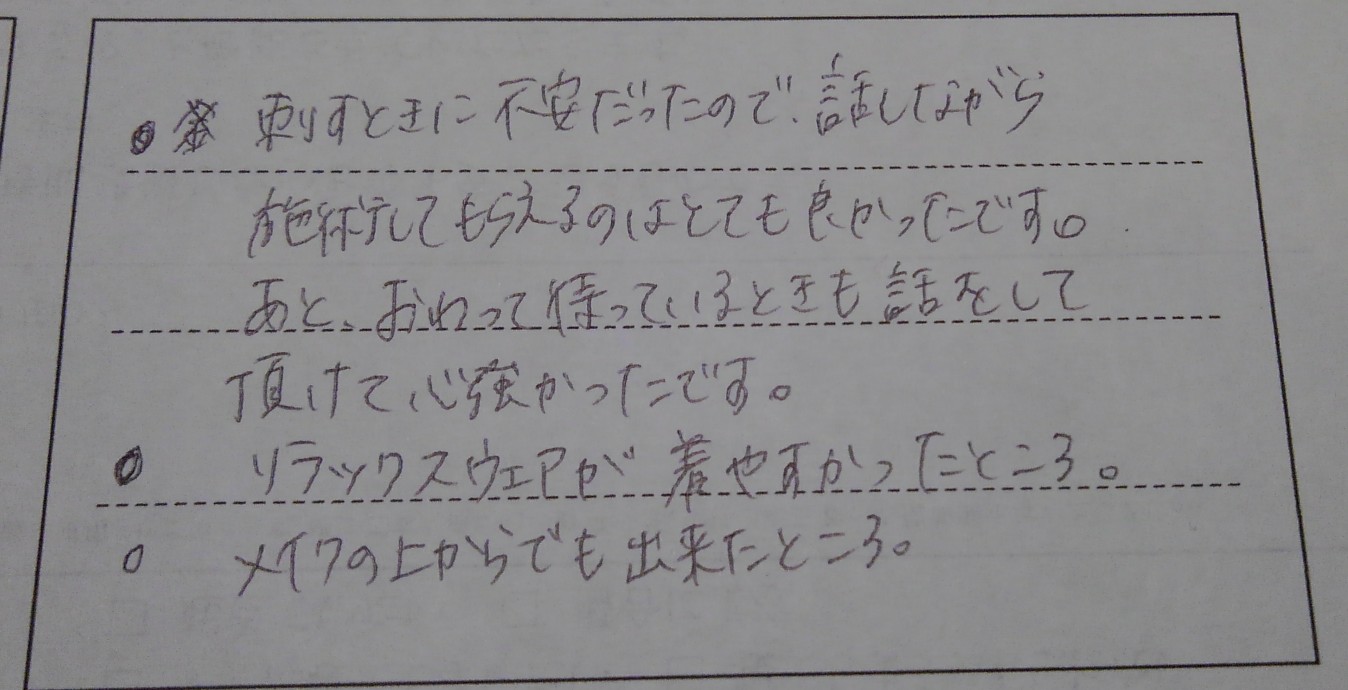 ● 刺すときに不安だったので、話しながら
施術してもらえるのはとても良かったです。
あと、おわって待っているときも話をして
頂けて心強かったです。
● リラックスウェアが着やすかったところ。
○ メイクの上からでも出来たところ。